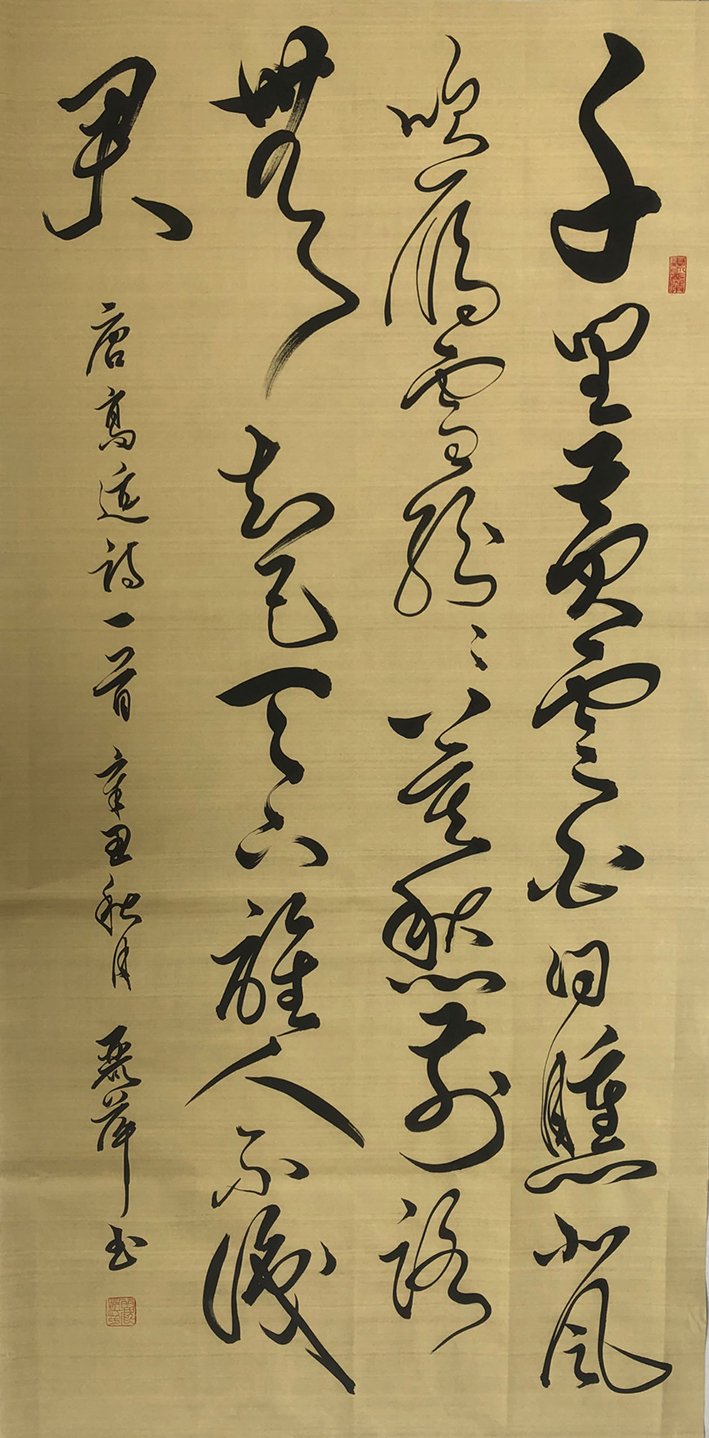 千里黃雲白日曛北風
吹雁雪紛紛莫愁前路
無知己天下誰人不識
君
唐高適詩一首 辛丑秋月 麗萍書